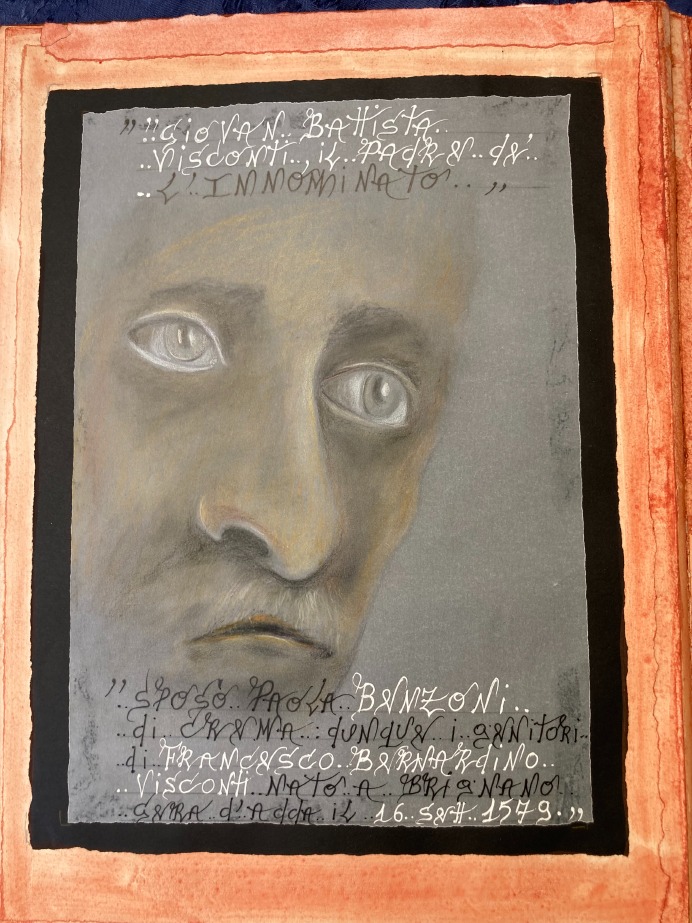 "!!GIOVAN.. BATTISTA..
..VISCONTI.., IL.. PADRE.. DE'..
..L'INNOMINATO..,,
,,..SPOSÒ.. PAOLA..BENZONI..
..di.. CREMA..: dUNQUE.. i.. GENITORi..
..di..FRANCESCO.. BERNARDINO..
..VISCONTI..NATO.. A.. BRIGNANO..
..GERA.. d'Adda.. iL.. 16.. SETT.. 1579..,,